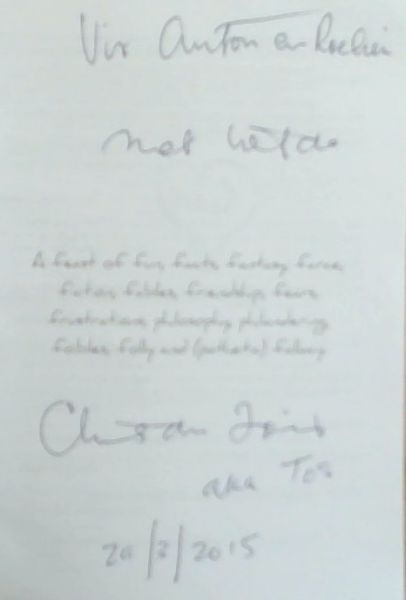 Vir Anton en
Met liefde
A feast of fun, facts, fantasy, farce,
fiction, fables, friendship, fears,
frustrations, philosophy, philandering,
foibles, folly and (pathetic) fallacy
aka
20/2/2015